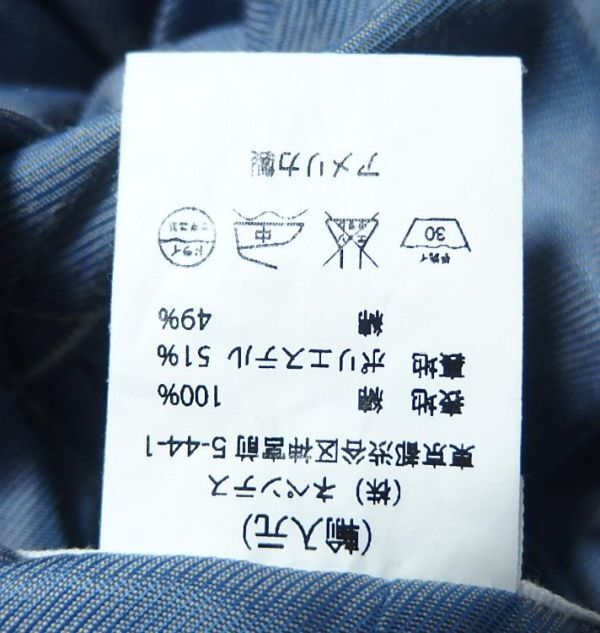 (輸入元)
(株)ネペンテス
東京都渋谷区神宮前5-44-1
表地 綿 100%
裏地 ポリエステル 51%
綿 49%
手洗イ 30 エンソサラシ 中 ドライ セキユ系
アメリカ製